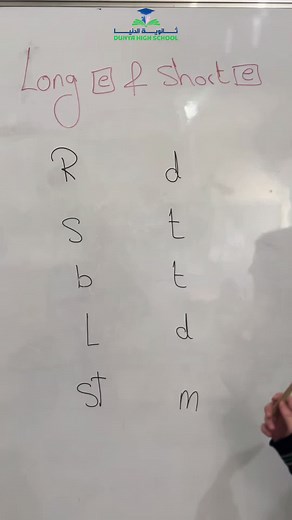 ثانوية الدنيا
DUNYA HIGH SCHOOL
Long e & Short e
R d
S t
b t
L d
st m